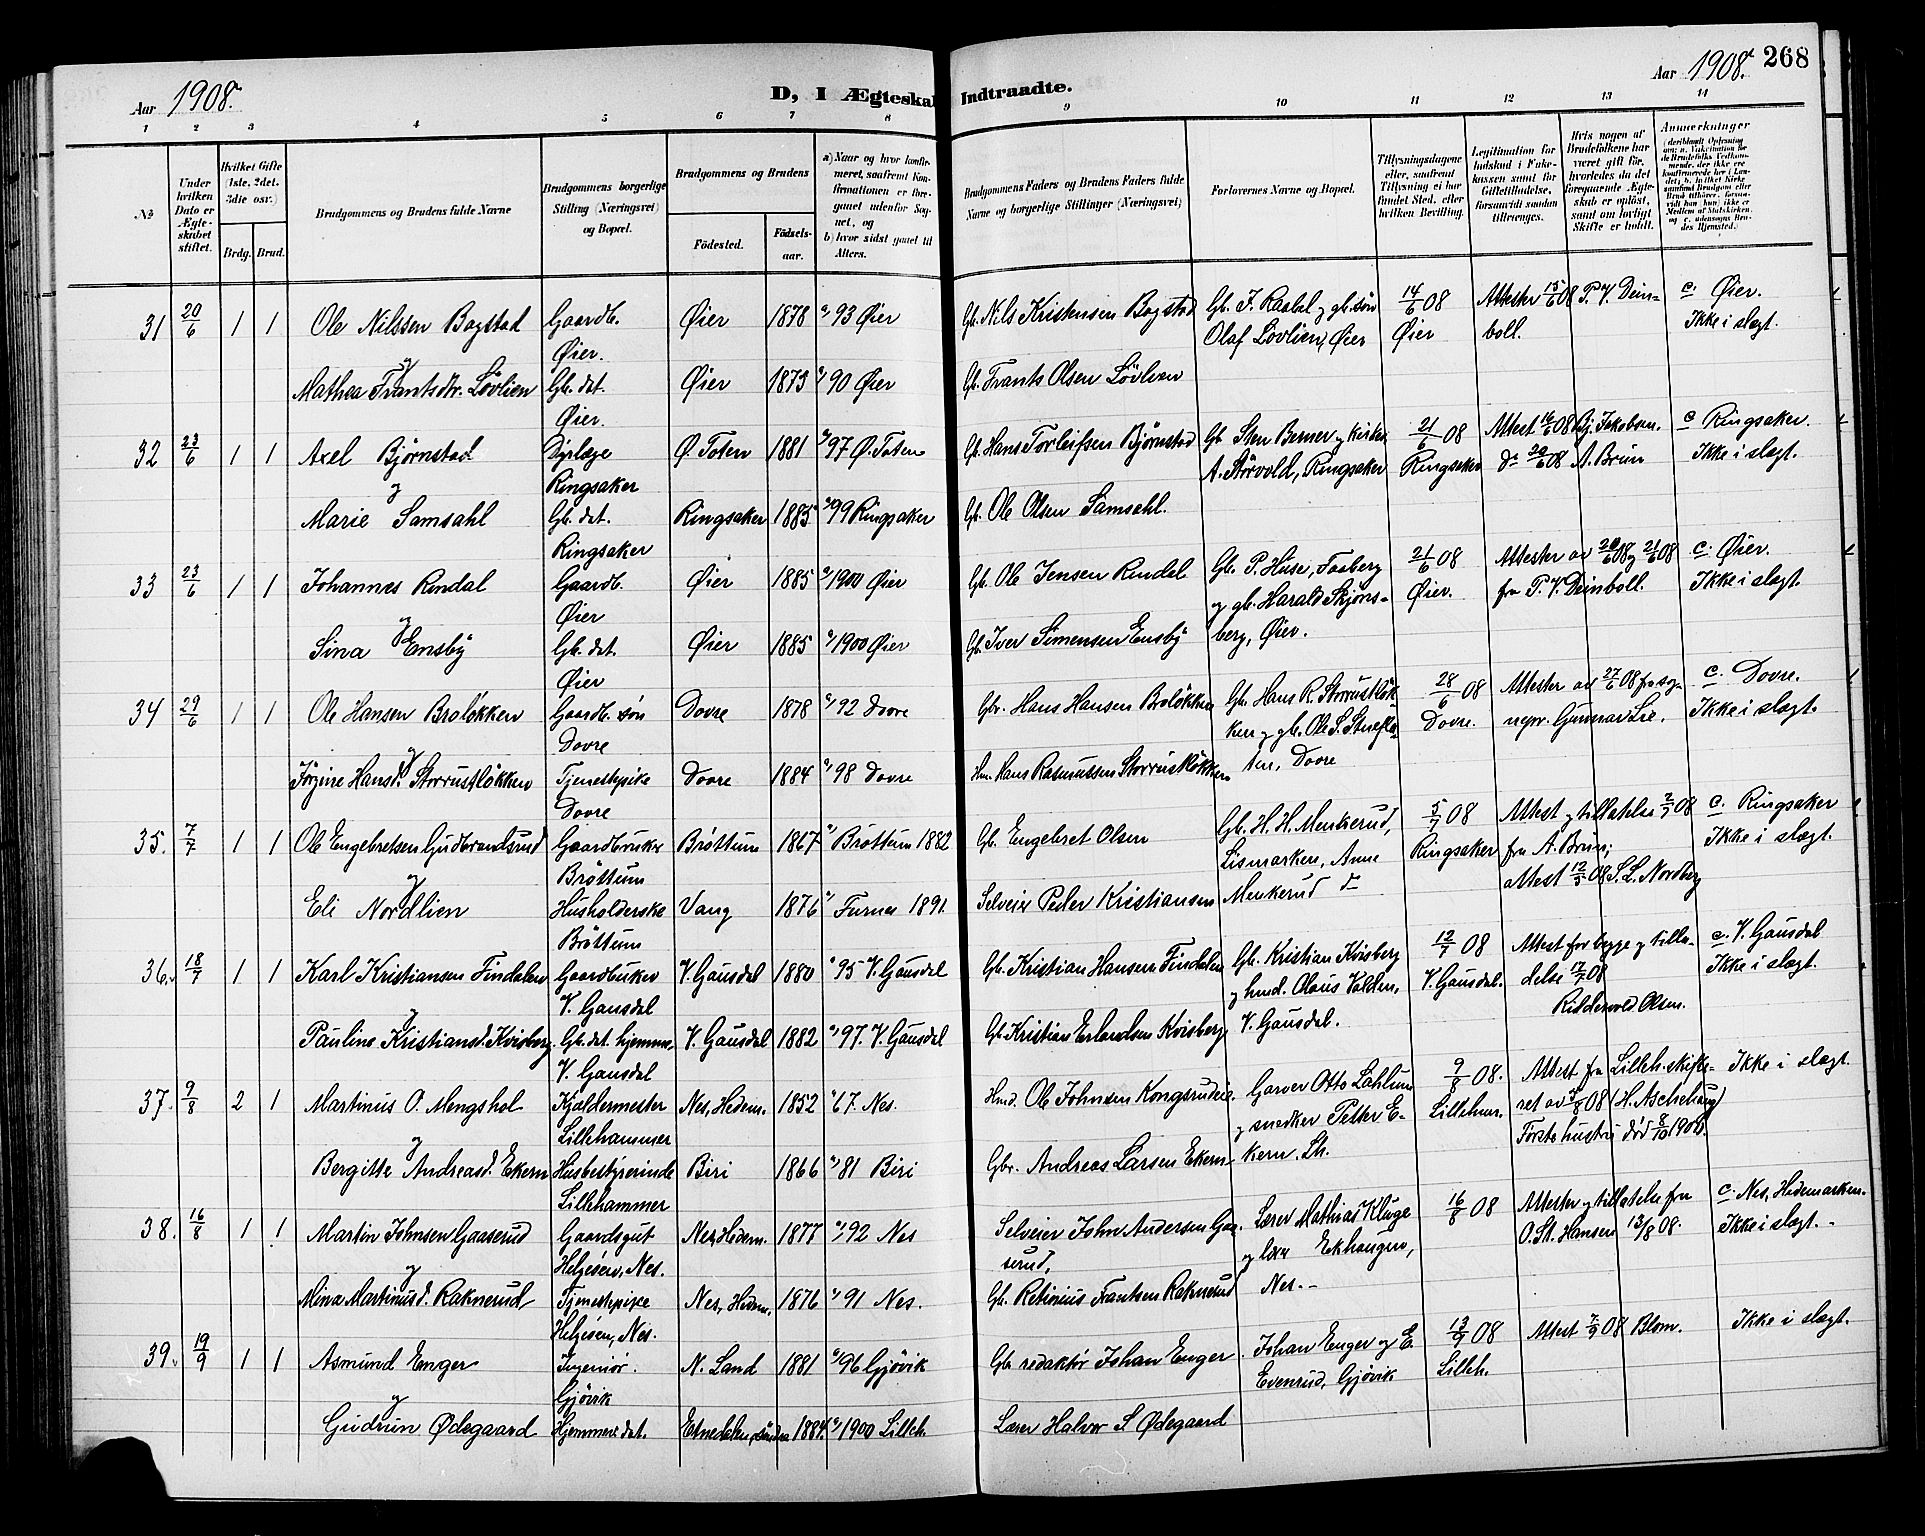 Aar 1908.
D, I Ægteskab Indtraadte.
Aar 1908. 268
1 2 3 4 5 6 7 8 9 10 11 12 13 14
№
Under hvilken Dato er Ægteskabet stiftet.
Hvilket Gifte (1ste, 2det, 3die osv.)
Brdg. Brud.
Brudgommens og Brudens fulde Navne
Brudgommens borgerlige Stilling (Næringsvei) og Bopæl.
Brudgommens og Brudens
Födested.
Födselsaar.
a) Naar og hvor konfirmeret, saafremt Konfirmationen er foregaaet udenfor Sognet, og
b) hvor sidst gaaet til Alters.
Brudgommens Faders og Brudens Faders fulde Navne og borgerlige Stillinger (Næringsvei)
Forlovernes Navne og Bopæl.
Tillysningsdagene eller, saafremt Tillysning ei har fundet Sted, efter hvilken Bevilling.
Legitimation for Indskud i Enkekassen samt for Giftetilladelse, forsaavidt saadan tiltrænges.
Hvis nogen af Brudefolkene har været gift før, hvorledes da det foregaaende Ægteskab er opløst, samt om lovligt Skifte er holdt.
Anmærkninger
31 20/6 1 1 Ole Nilssen Bagstad Gaardb. Øier. Øier 1878 a) 93 Øier Gb. Nils Kristensen Bagstad Gb. J. Raabøl og gb.søn Olaf Lovlien, Øier 14/6 08 Øier Attester 15/6 08 P. V. Deinboll. c. Øier. Ikke i slegt.
og
Mathea Frantsdtr. Lövlien Gb. dat. Øier. Øier 1873 a) 90 Øier Gb. Frants Olsen Lövlien
32 23/6 1 1 Axel Bjørnstad Dyrlæge Ringsaker Ø. Toten 1881 a) 97 Ø. Toten Gb. Hans Torleifsen Bjørnstad Gb. Sten Berner og kirkes. A. Störvold, Ringsaker 21/6 08 Ringsaker Attest 16/6 08 Gj. Jakobsen. do 20/6 08 A. Brun c Ringsaker. Ikke i slegt.
og
Marie Samsahl Gb. dat. Ringsaker Ringsaker 1885 a) 99 Ringsaker Gb. Ole Olsen Samsahl.
33 23/6 1 1 Johannes Rindal Gaardb. Øier Øier 1885 a) 1900 Øier Gb. Ole Jensen Rindal Gb. P. Huse, Faaberg og gb. Harald Skjønsberg, Øier. 21/6 08 Øier. Attester av 20/6 08 og 21/6 08 fra P. V. Deinboll. c. Øier. Ikke i slegt.
og
Sina Ensby Gb. dat. Øier Øier 1885 a) 1900 Øier Gb. Iver Simensen Ensby
34 29/6 1 1 Ole Hansen Broløkken Gaardb. søn Dovre Dovre 1878 a) 92 Dovre Gbr. Hans Hansen Broløkken Gb. Hans R. Storrustløkken og gb. Ole S. Stueflaten, Dovre 28/6 08 Dovre. Attester av 27/6 08 fra sognepr. Gunnar Lie. c. Dovre. Ikke i slegt.
og
Jörgine Hansd. Storrustløkken Tjenestepike Dovre Dovre 1884 a) 98 Dovre Hm. Hans Rasmussen Storrustløkken
35. 7/7 1 1 Ole Engebretsen Gudbrandsrud Gaardbruker Bröttum Bröttum 1867 a) Bröttum 1882 Gb. Engebret Olsen Gb. H. H. Menkerud, Lismarken, Anne Menkerud do 5/7 08 Ringsaker Attest og tillatelse 2/7 08 fra A. Brun; attest 12/5 08, S. L. Nordberg c. Ringsaker Ikke i slegt.
og
Eli Nordlien Husholderske Bröttum Vang 1876 a) Furnes 1891. Selveier Peder Kristiansen
36. 18/7 1 1 Karl Kristiansen Findalen Gaardbuker V. Gausdal V. Gausdal 1880 a) 95 V. Gausdal Gb. Kristian Hansen Findalen Gb. Kristian Kvisberg og hmd. Olaus Valden, V. Gausdal. 12/7 08 V. Gausdal. Attest for begge og tilladelse 17/7 08 Riddervold Olsen. c. V. Gausdal Ikke i slegt.
og
Pauline Kristiansd. Kvisberg Gb. dat. hjemme, V. Gausdal V. Gausdal 1882 a) 97. V. Gausdal Gb. Kristian Erlandsen Kvisberg
37. 9/8 2 1 Martinus O. Mengshol Kjældermester Lillehammer Nes, Hedem. 1852 a) 67. Nes. Hmd. Ole Johnsen Kongsrudeie. Garver Otto Lahlum og snedker Petter Ekern, Lh. 9/8 08. Lillehmr. Attest fra Lilleh. skifteret av /8 08 (H. Aschehoug) Første hustru død 8/10 190. Ikke i slegt.
og
Bergitte Andreasd. Ekern Husbestyrerinde Lillehammer Biri 1866 a) 81 Biri Gbr. Andreas Larsen Ekern
38. 16/8 1 1 Martin Johnsen Gaaserud Gaardsgut Helgöen, Nes. Nes, Hedem. 1877 a) 92 Nes Selveier John Andersen Gaaserud, Lærer Mathias Kluge og lærer Ekhaugen, Nes. - 16/8 08 Attester og tillatelse fra O. St. Hansen 13/8 08. c. Nes, Hedemarken. Ikke i slegt. -
og
Mina Martinusd. Raknerud Tjenestepike Helgöen, Nes. Nes, Hedem. 1876 a) 91 Nes. Gb. Frantsen Raknerud
39. 19/9 1 1 Asmund Enger Ingeniör. Gjövik N. Land 1881 a) 96 Gjövik Gb. redaktør Johan Enger Johan Enger og E. Evenrud, Gjövik 13/9 08 Lilleh. Attest 7/9 08 Blom. Ikke i slegt.
og
Gudrun Ødegaard Hjemmev. dat. Etnedalen, söndre 1884. a) 1900 Lilleh. Lærer Halvor S Ødegaard